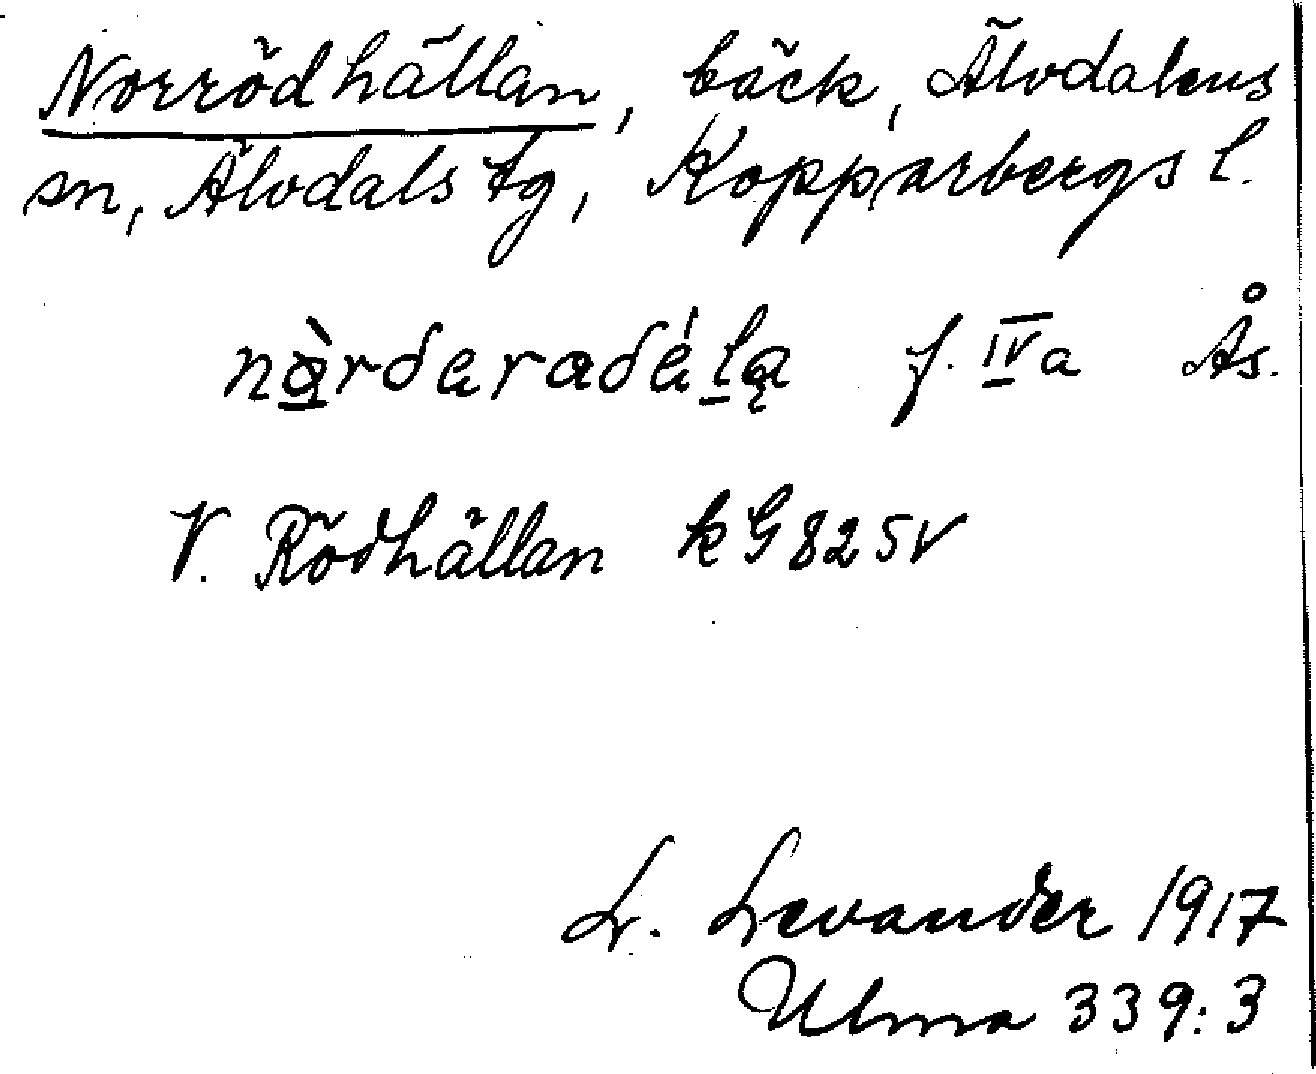 Norrödhällan, bäck, Älvdalens
sn, Älvdals tg, Kopparbergs l.
f. IV a Ås.
V. Rödhällan kG 825V
L. Levander 1917
Ulma 339:3